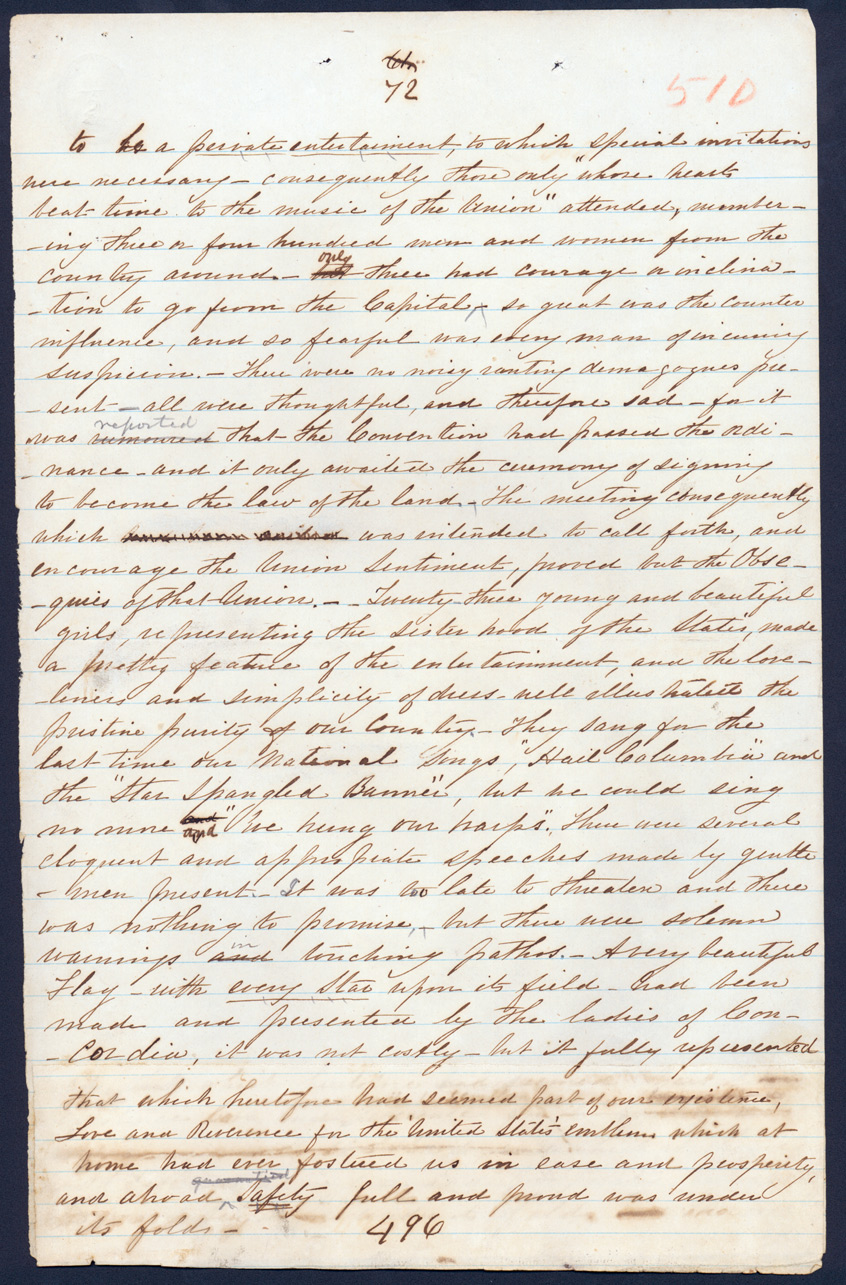 72
510
to a private entertainment, to which special invitations
were necessary – consequently those only "whose hearts
beat time to the music of the Union" attended, number-
-ing three or four hundred men and women from the
county around – only three had courage or inclina-
-tion to go from the Capital – so great was the counter
influence, and so fearful was every man of incuring
suspicion. – There were no noisy ranting demagogues pre-
-sent – all were thoughtful, and therefore sad – for it
was rumoured reported that the Convention had passed the ordi-
-nance – and it only awaited the ceremony of signing
to become the law of the land – The meeting consequently
which was intended to call forth, and
encourage the Union Sentiment, proved but the Obse-
-quies of that Union. – – Twenty-three young and beautiful
girls, representing the sisterhood of the States, made
a pretty feature of the entertainment, and the love-
-liness and simplicity of dress – well illustrated the
pristine purity of our Country – They sang for the
last time our National Songs, "Hail Columbia" and
the "Star Spangled Banner", but we could sing
no more and and "We hung our harps". There were several
eloquent and appropriate speeches made by gentle
-men present – It was too late to threaten and there
was nothing to promise, – but there were solemn
warnings and in touching pathos. – A very beautiful
Flag – with every star upon its field – had been
made and presented by the ladies of Con-
-cordia, it was not costly – but it fully represented
that which heretofore had seemed part of our existence,
Love and Reverence for the United State's emblem, which at
home had ever fostered us in ease and prosperity,
and abroad guarantied Safety full and proud was under
its folds –
496